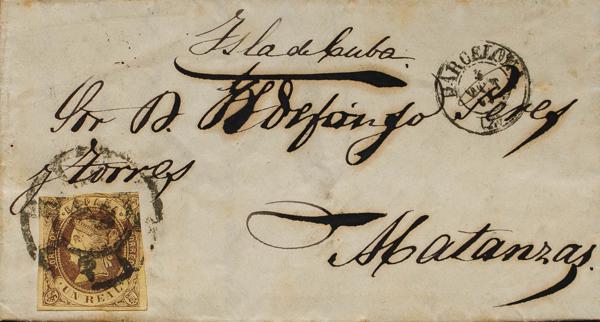 Isla de Cuba.
BARCELONA
Sor D. Ildefonso Pares
y Torres
Matanzas.
CORREOS
CORREOS
UN REAL